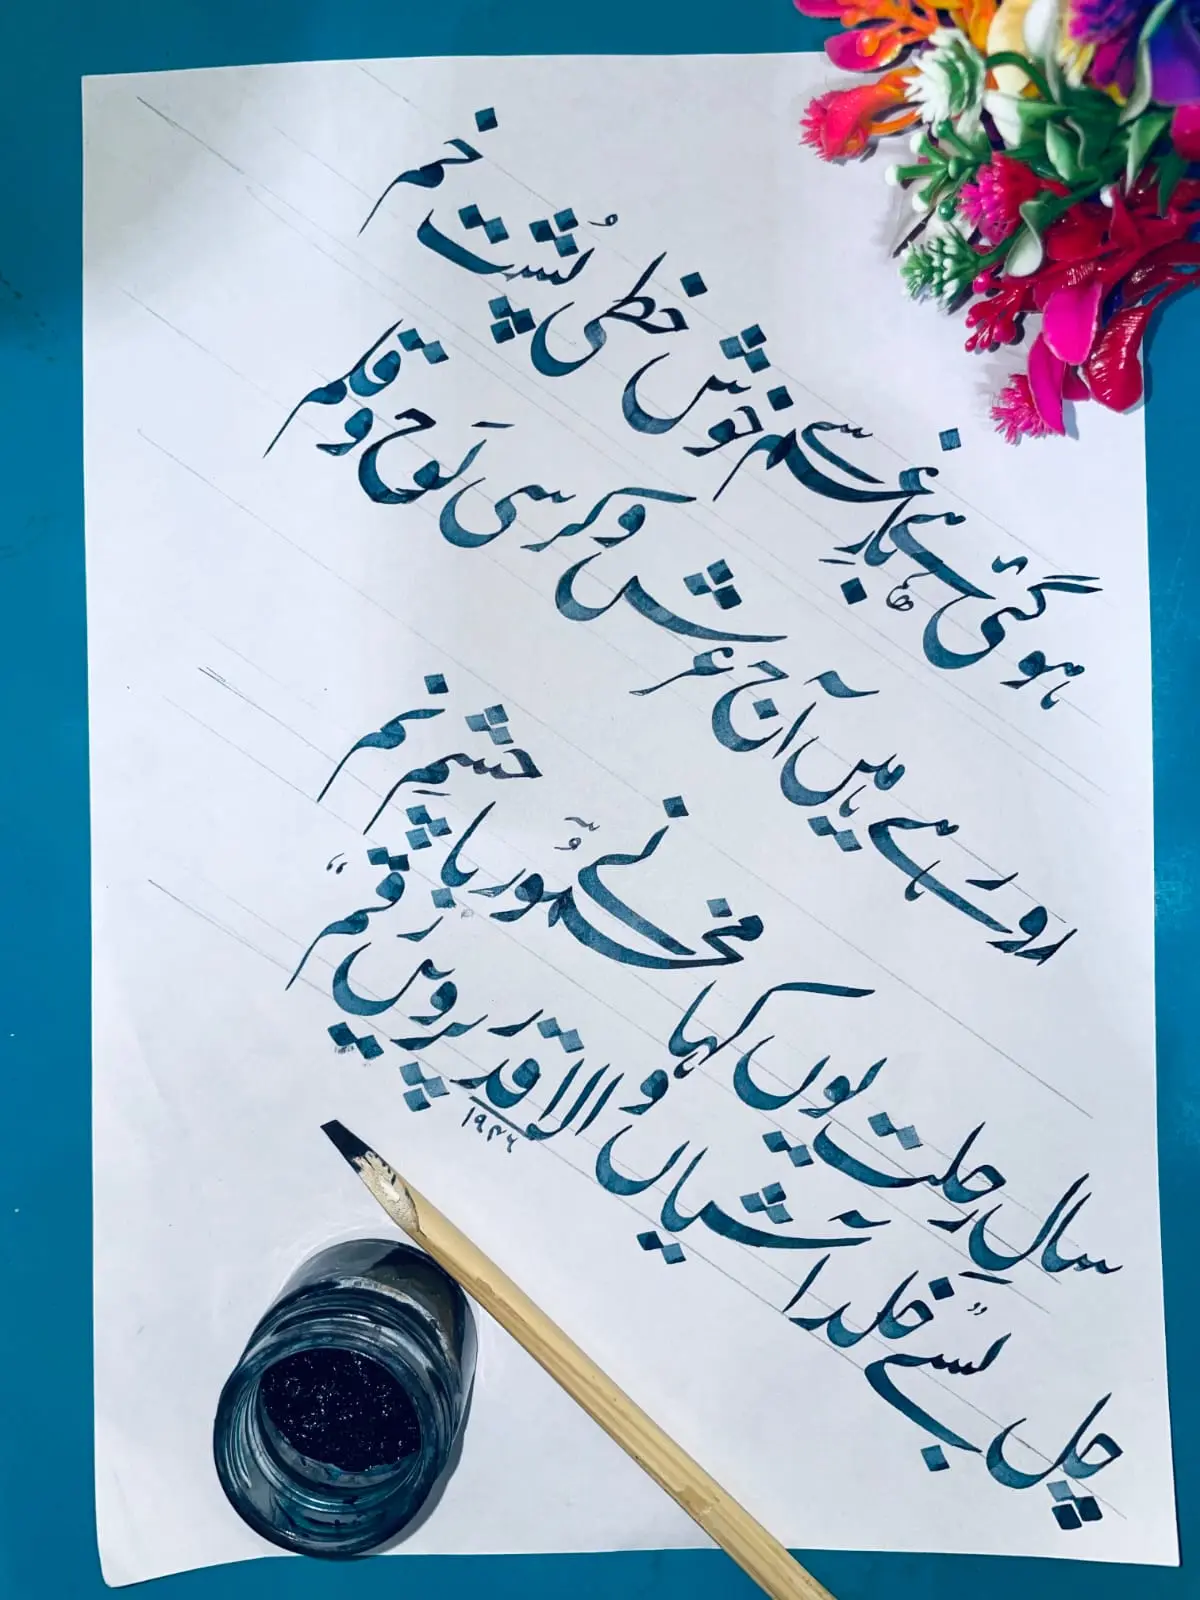 ہوگئی ہے بارِ غم سے خوش خطی پُشت خم
رو رہے ہیں آج عرش و کرسی لَوح و قلم
سالِ رحلت یوں کہا مخمُور نے با چشمِ نم
چل بسے خلد آشیاں والا قدر پرویں رقم
۱۹۴۶